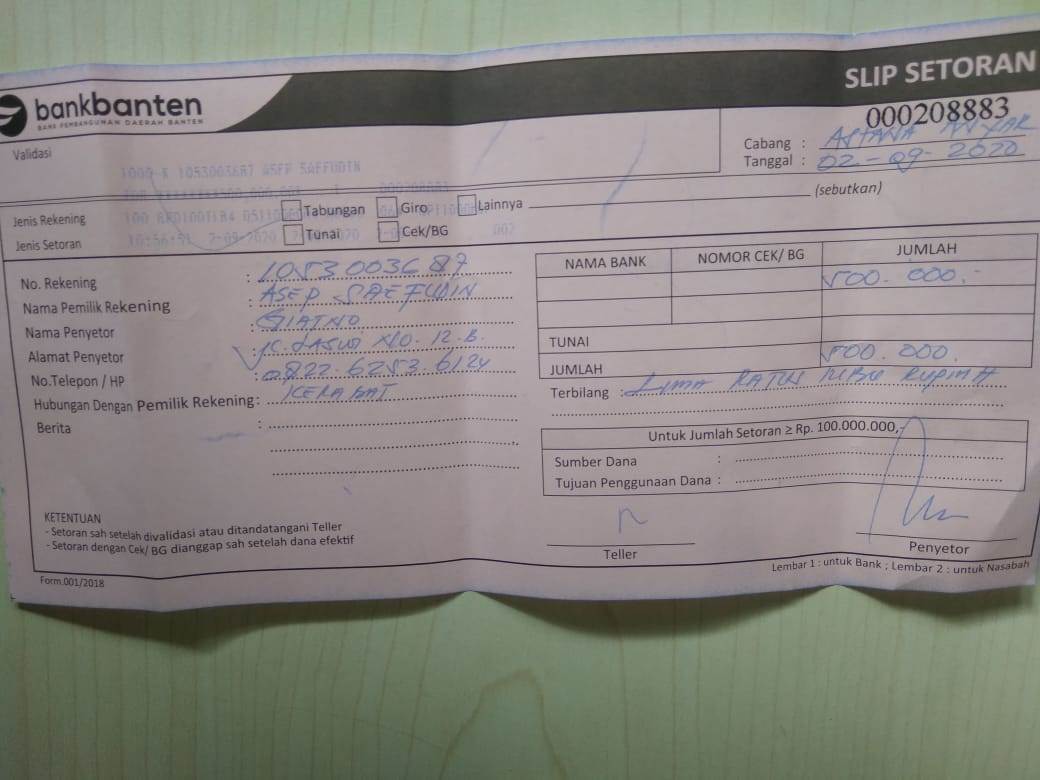 bankbanten
BANK PEMBANGUNAN DAERAH BANTEN
SLIP SETORAN
000208883
Validasi
Cabang : ASTANA ANYAR
Tanggal : 02-09-2020
1053003687 ASEP SAEFUDIN
Jenis Rekening Tabungan Giro Lainnya (sebutkan)
Jenis Setoran Tunai Cek/BG
10:56:51 2-09-2020
No. Rekening : 1053003687
Nama Pemilik Rekening : ASEP SAEFUDIN
Nama Penyetor : GIATNO
Alamat Penyetor : NO. 12.B.
No.Telepon / HP : 0822.6253.6124
Hubungan Dengan Pemilik Rekening: KERABAT
Berita :
NAMA BANK NOMOR CEK/ BG JUMLAH
500.000.-
TUNAI
JUMLAH 500.000.
Terbilang : LIMA RATUS RIBU RUPIAH
Untuk Jumlah Setoran ≥ Rp. 100.000.000,-
Sumber Dana :
Tujuan Penggunaan Dana :
KETENTUAN
- Setoran sah setelah divalidasi atau ditandatangani Teller
- Setoran dengan Cek/ BG dianggap sah setelah dana efektif
Teller
Penyetor
Form.001/2018
Lembar 1 : untuk Bank ; Lembar 2 : untuk Nasabah